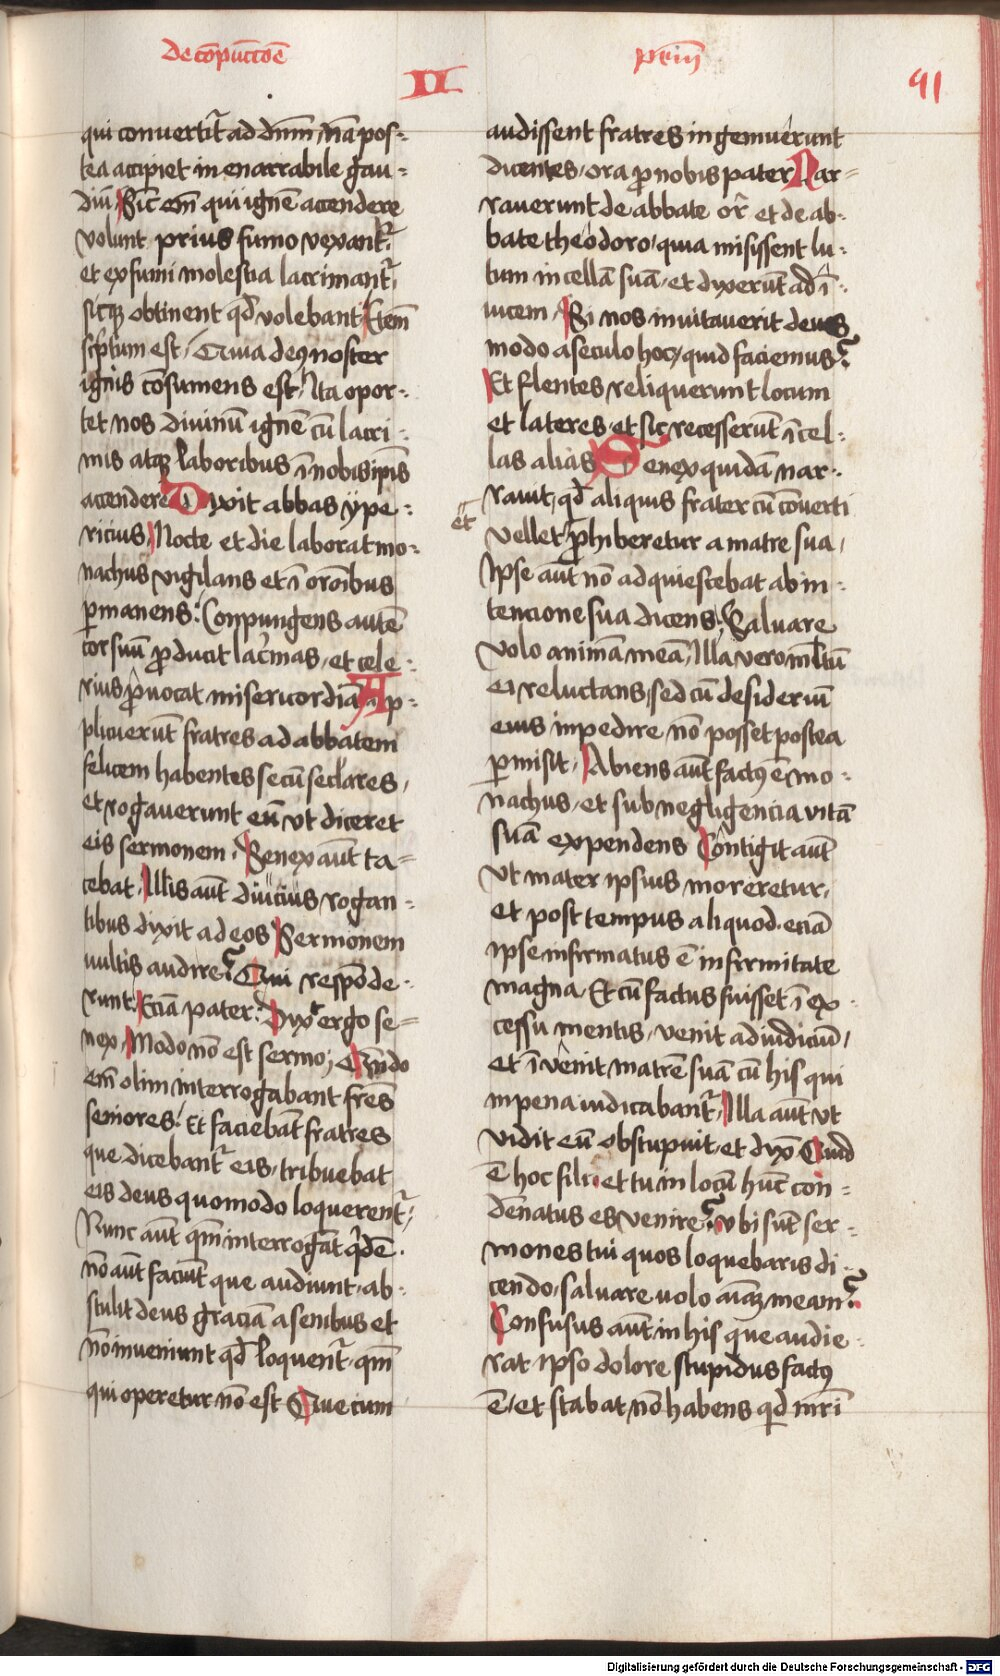 de co̅pu̅ctio̅e
II
pr̅m̅
91
qui conuertit᷑ ad dn̅m, na̅ pos-
tea accipiet in enarrabile gau-
diu̅ Sic em̅ qui igne̅ accendere
volunt prius fumo vexant᷑
et ex fumi molestia lacrimant᷑
sicqꝫ obtinent qd̅ volebant Etem̅
sc̅ptum est, Quia deꝰ noster
ignis co̅sumens est, Ita opor-
tet nos diuinu̅ igne̅ cu̅ lacri-
mis atqꝫ laboribus i̅ nobisip̅is
accendere Dixit abbas ype-
ricius, Nocte et die laborat mo-
nachus vigilans et i̅ or̅onibus
ꝑmanens: Conpungens aute̅
cor suu̅ ꝓducit lac̅mas, et cele-
rius ꝓuocat misericordia̅ Ap-
plicueru̅t fratres ad abbatem
felicem habentes secu̅ seclares,
et rogauerunt eu̅ vt diceret
eis sermonem, Senex aut̅ ta-
cebat, Illis aut̅ diucius rogan-
tibus dixit ad eos Sermonem
uultis audire? Qui respo̅de-
runt, Ecia̅ pater: Dix᷑ ergo se-
nex, Modo no̅ est sermo; Qn̅do
em̅ olim interrogabant fr̅es
seniores, Et facieba̅t fratres
que dicebant᷑ eis, tribuebat
eis deus quomodo loquerent᷑,
Nunc aut̅ qm̅ interroga̅t q̅de̅
no̅ aut̅ faciu̅t que audiunt, ab-
stulit deus gracia̅ a senibus et
no̅ inueniunt qd̅ loquent᷑, qm̅
qui operetur no̅ est Que cum
audissent fratres ingemuerunt
dicentes, ora ꝓ nobis pater Nar-
rauerunt de abbate or̅ et de ab-
bate theodoro, quia misissent lu-
tum in cella̅ sua̅, et dixeru̅t ad i̅-
uicem, Si nos inuitauerit deus
modo a seculo hoc, quid faciemus?
Et flentes reliquerunt locum
et lateres, et sic recesseru̅t i̅ cel-
las alias Senex quida̅ nar-
rauit, qd̅ aliquis frater cu̅ co̅uerti
et
vellet ꝓhiberetur a matre sua,
Ipse aut̅ no̅ adquiescebat ab in-
tencione sua dicens, Saluare
volo anima̅ mea̅, Illa vero ml̅tu̅
ei reluctans, sed cu̅ desideriu̅
eius inpedire no̅ posset postea
ꝑmisit, Abiens aut̅ factꝰ e̅ mo-
nachus, et sub negligencia vita̅
sua̅ expendens Contigit aut̅
vt mater ipsius moreretur,
et post tempus aliquod, ecia̅
ipse infirmatus e̅ infirmitate
magna, Et cu̅ factus fuisset i̅ ex-
cessu mentis, venit ad iudiciu̅,
et i̅uenit matre̅ sua̅ cu̅ his qui
in pena iudicabant᷑, Illa aut̅ vt
vidit eu̅ obstupuit, et dix̅ Quid
e̅ hoc fili, et tu in locu̅ hu̅c con-
de̅natus es venire? vbi su̅t ser-
mones tui quos loquebaris di-
cendo, saluare uolo ai̅aꝫ meam?
Confusus aut̅ in his que audie-
rat, ipso dolore stupidus factꝰ
e̅, et stabat no̅ habens qd̅ mr̅i
Digitalisierung gefördert durch die Deutsche Forschungsgemeinschaft - DFG